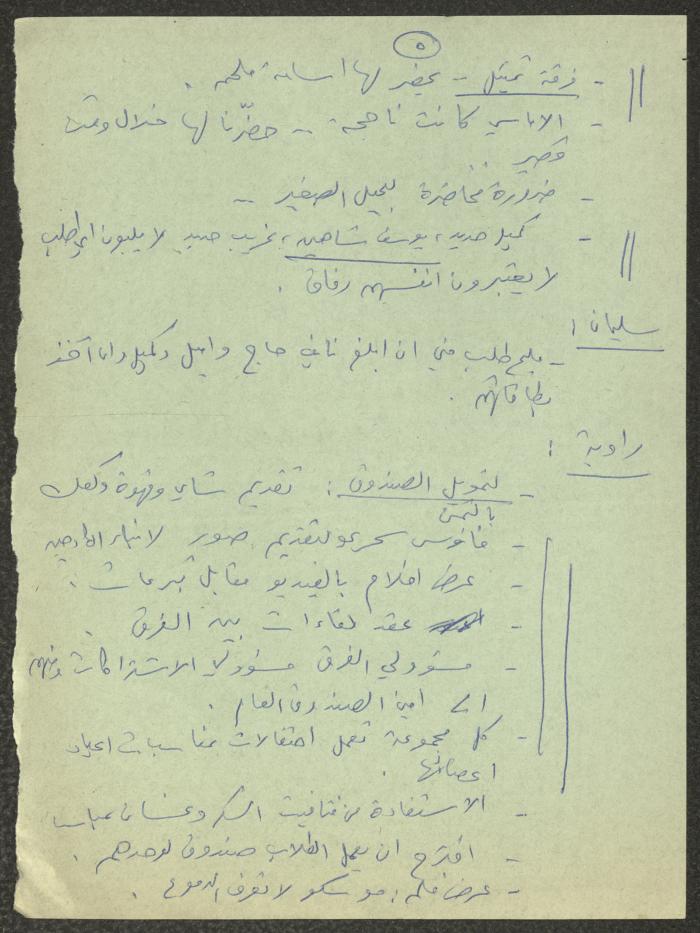 ٥
- فرقة تمثيل - يحضر لها اسامة ملحم .
- الاماسي كانت ناجحة .. حضّرنا لها خلال وقت
قصير ..
- ضرورة محاضرة للجيل الصغير ..
- كميل حديد ، يوسف شاهين ، غريب حديد لا يلبون اي طلب
لا يعتبرون انفسهم رفاق .
سليمان :
- ملحم طلب مني ان ابلغ نايف حاج واميل وكميل وانا آخذ
بطاقاتهم .
راوية :
- لتمويل الصندوق : تقديم شاي وقهوة وكعك
بالثمن
- فانوس سحري لتقديم صور
- عرض افلام بالفيديو مقابل تبرعات .
- عقد لقاءات بين الفرق .
- مسؤولي الفرق مسؤولي الاشتراكات ومنهم
الى امين الصندوق العام .
- كل مجموعة تعمل احتفالات بمناسبات اعياد
اعضائها .
- الاستفادة من وغسان عباس
- اقترح ان يعمل الطلاب صندوق لوحدهم .
- عرض فلم : موسكو لا تعرف الدموع .